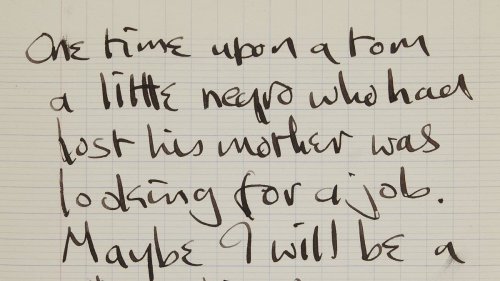 One time upon a tom
a little negro who had
lost his mother was
looking for a job.
Maybe I will be a